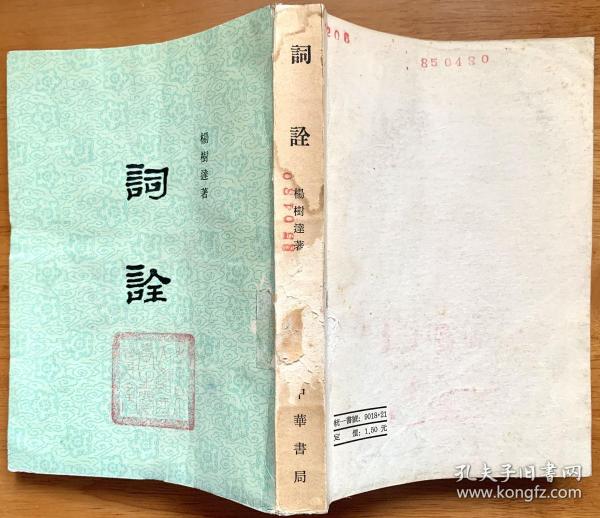 楊樹達著
詞詮
詞詮
楊樹達著
850480
華書局
206
850480
統一書號:9018·21
定價:1.50元
孔夫子旧书网
www.kongfz.com